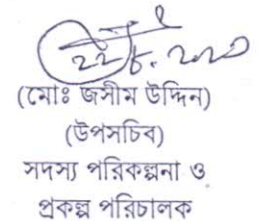 (মোঃ জসীম উদ্দিন)
(উপসচিব)
সদস্য পরিকল্পনা ও
প্রকল্প পরিচালক